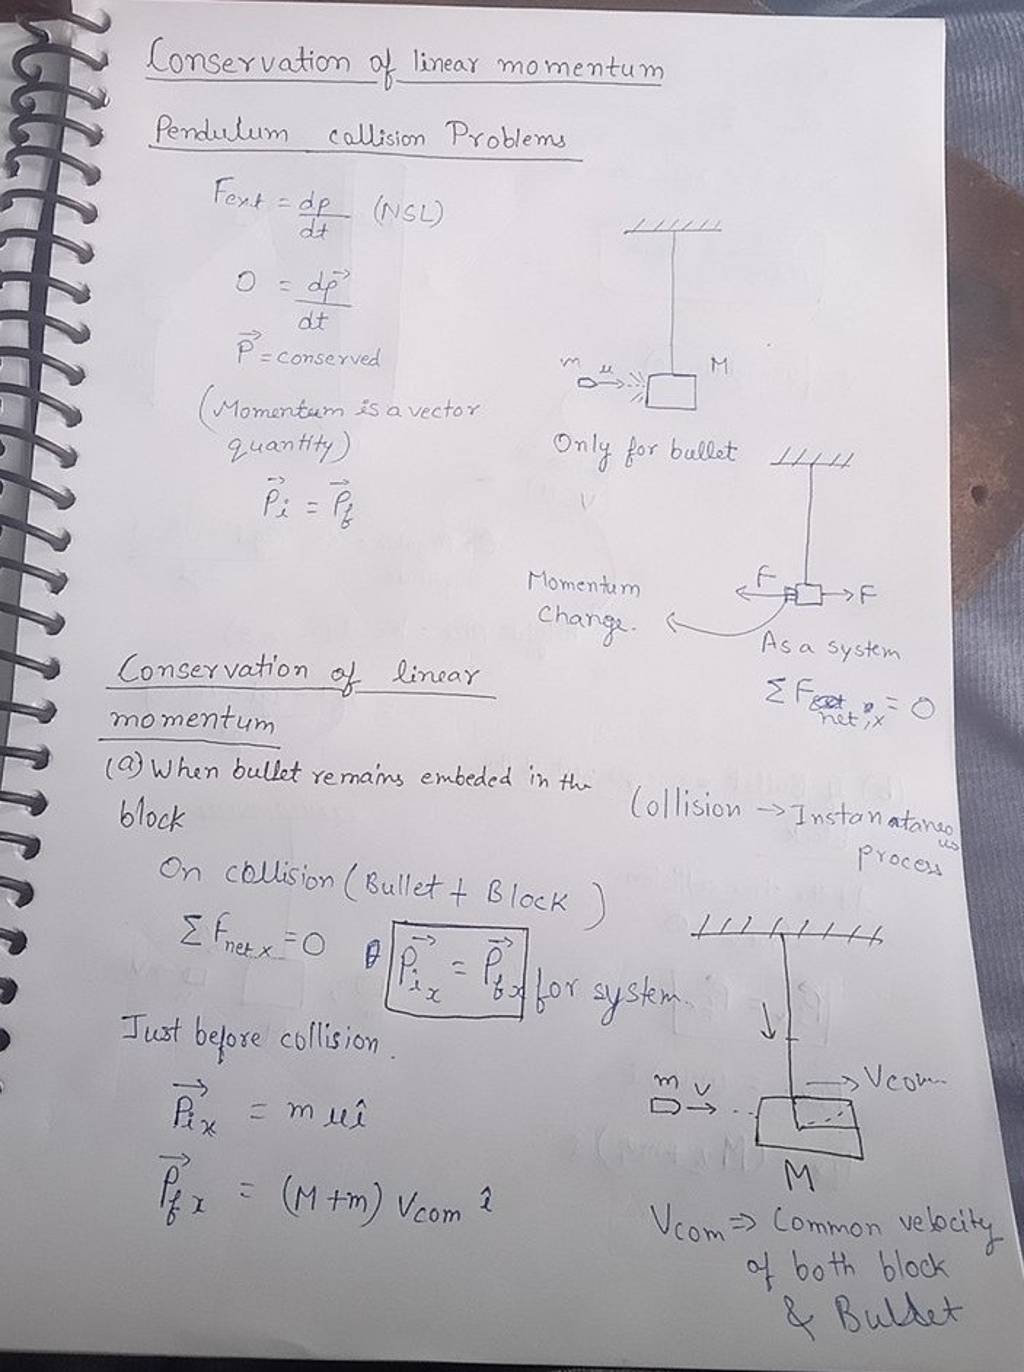 Conservation of linear momentum
Pendulum collision Problems
Fext = dp/dt (NSL)
0 = dp⃗/dt
P⃗ = conserved
(Momentum is a vector
quantity)
P⃗i = P⃗f
m u M
Only for bullet
F F
Momentum
Change.
As a system
ΣF net,x = 0
Conservation of linear
momentum
(a) When bullet remains embeded in the
block
Collision → Instanataneo
us
process
On collision (Bullet + Block)
ΣFnet x = 0 P⃗ix = P⃗fx for system.
Just before collision.
m v Vcom
P⃗ix = m u î
M
P⃗fx = (M+m) Vcom î
Vcom ⇒ Common velocity
of both block
& Bullet